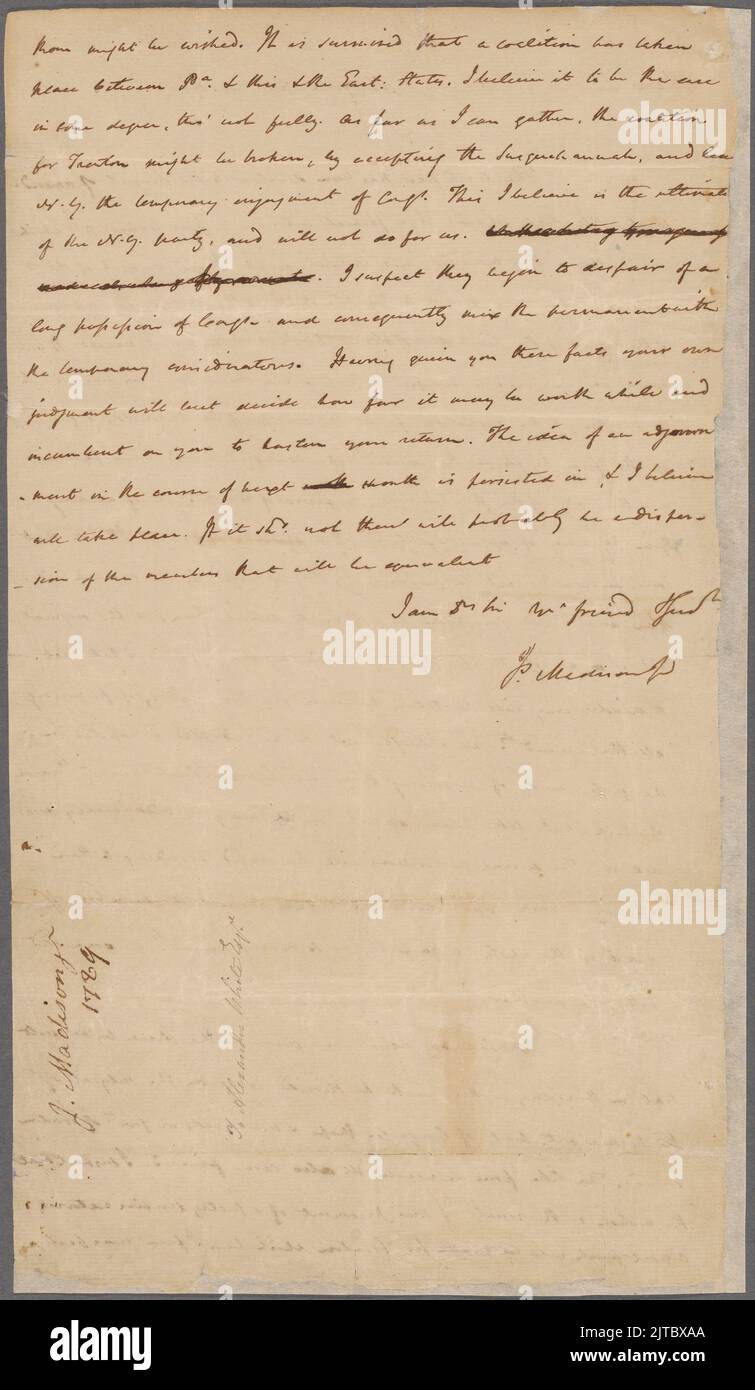 them might be wished. It is surmised that a coalition has taken
place between Pa. & this & the East: States. I believe it to be the case
in some degree, tho' not fully. As far as I can gather, the coalition
for Trenton might be broken, by accepting the Susquehannah, and leav
N. Y. the temporary enjoyment of Congs. This I believe is the ultimate
of the N. Y. party, and will not do for us.
I suspect they begin to despair of a
long possession of Congs. and consequently mix the permanent with
the temporary considerations. Having given you these facts your own
judgment will best decide how far it may be worth while and
incumbent on you to hasten your return. The idea of an adjourn
-ment in the course of next month is persisted in, & I believe
will take place. If it shd. not there will probably be a disper-
-sion of the members that will be equivalent
I am Dr Sir Yr friend &
Js. Madison Jr
J. Madison Jr.
1789
To Alexander White Esqr
alamy
Image ID: 2JTBXAA
www.alamy.com